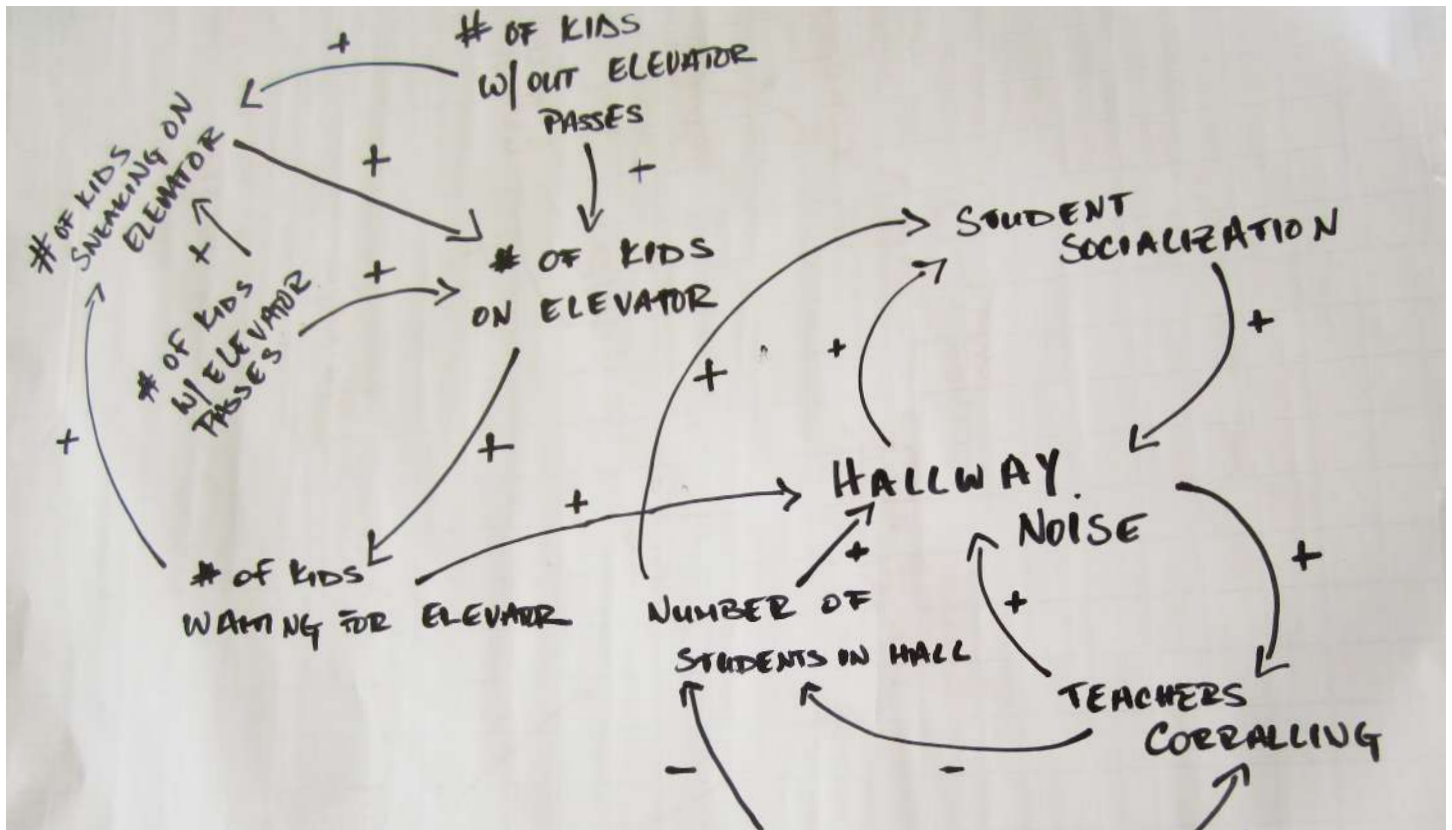 +
# OF KIDS
W/OUT ELEVATOR
PASSES
+
+
# OF KIDS
SNEAKING ON
ELEVATOR
+
+
# OF KIDS
W/ ELEVATOR
PASSES
# OF KIDS
ON ELEVATOR
STUDENT
SOCIALIZATION
+
+
+
+
+
+
HALLWAY
NOISE
+
+
+
+
# OF KIDS
WAITING FOR ELEVATOR
NUMBER OF
STUDENTS IN HALL
TEACHERS
CORRALLING
-
-